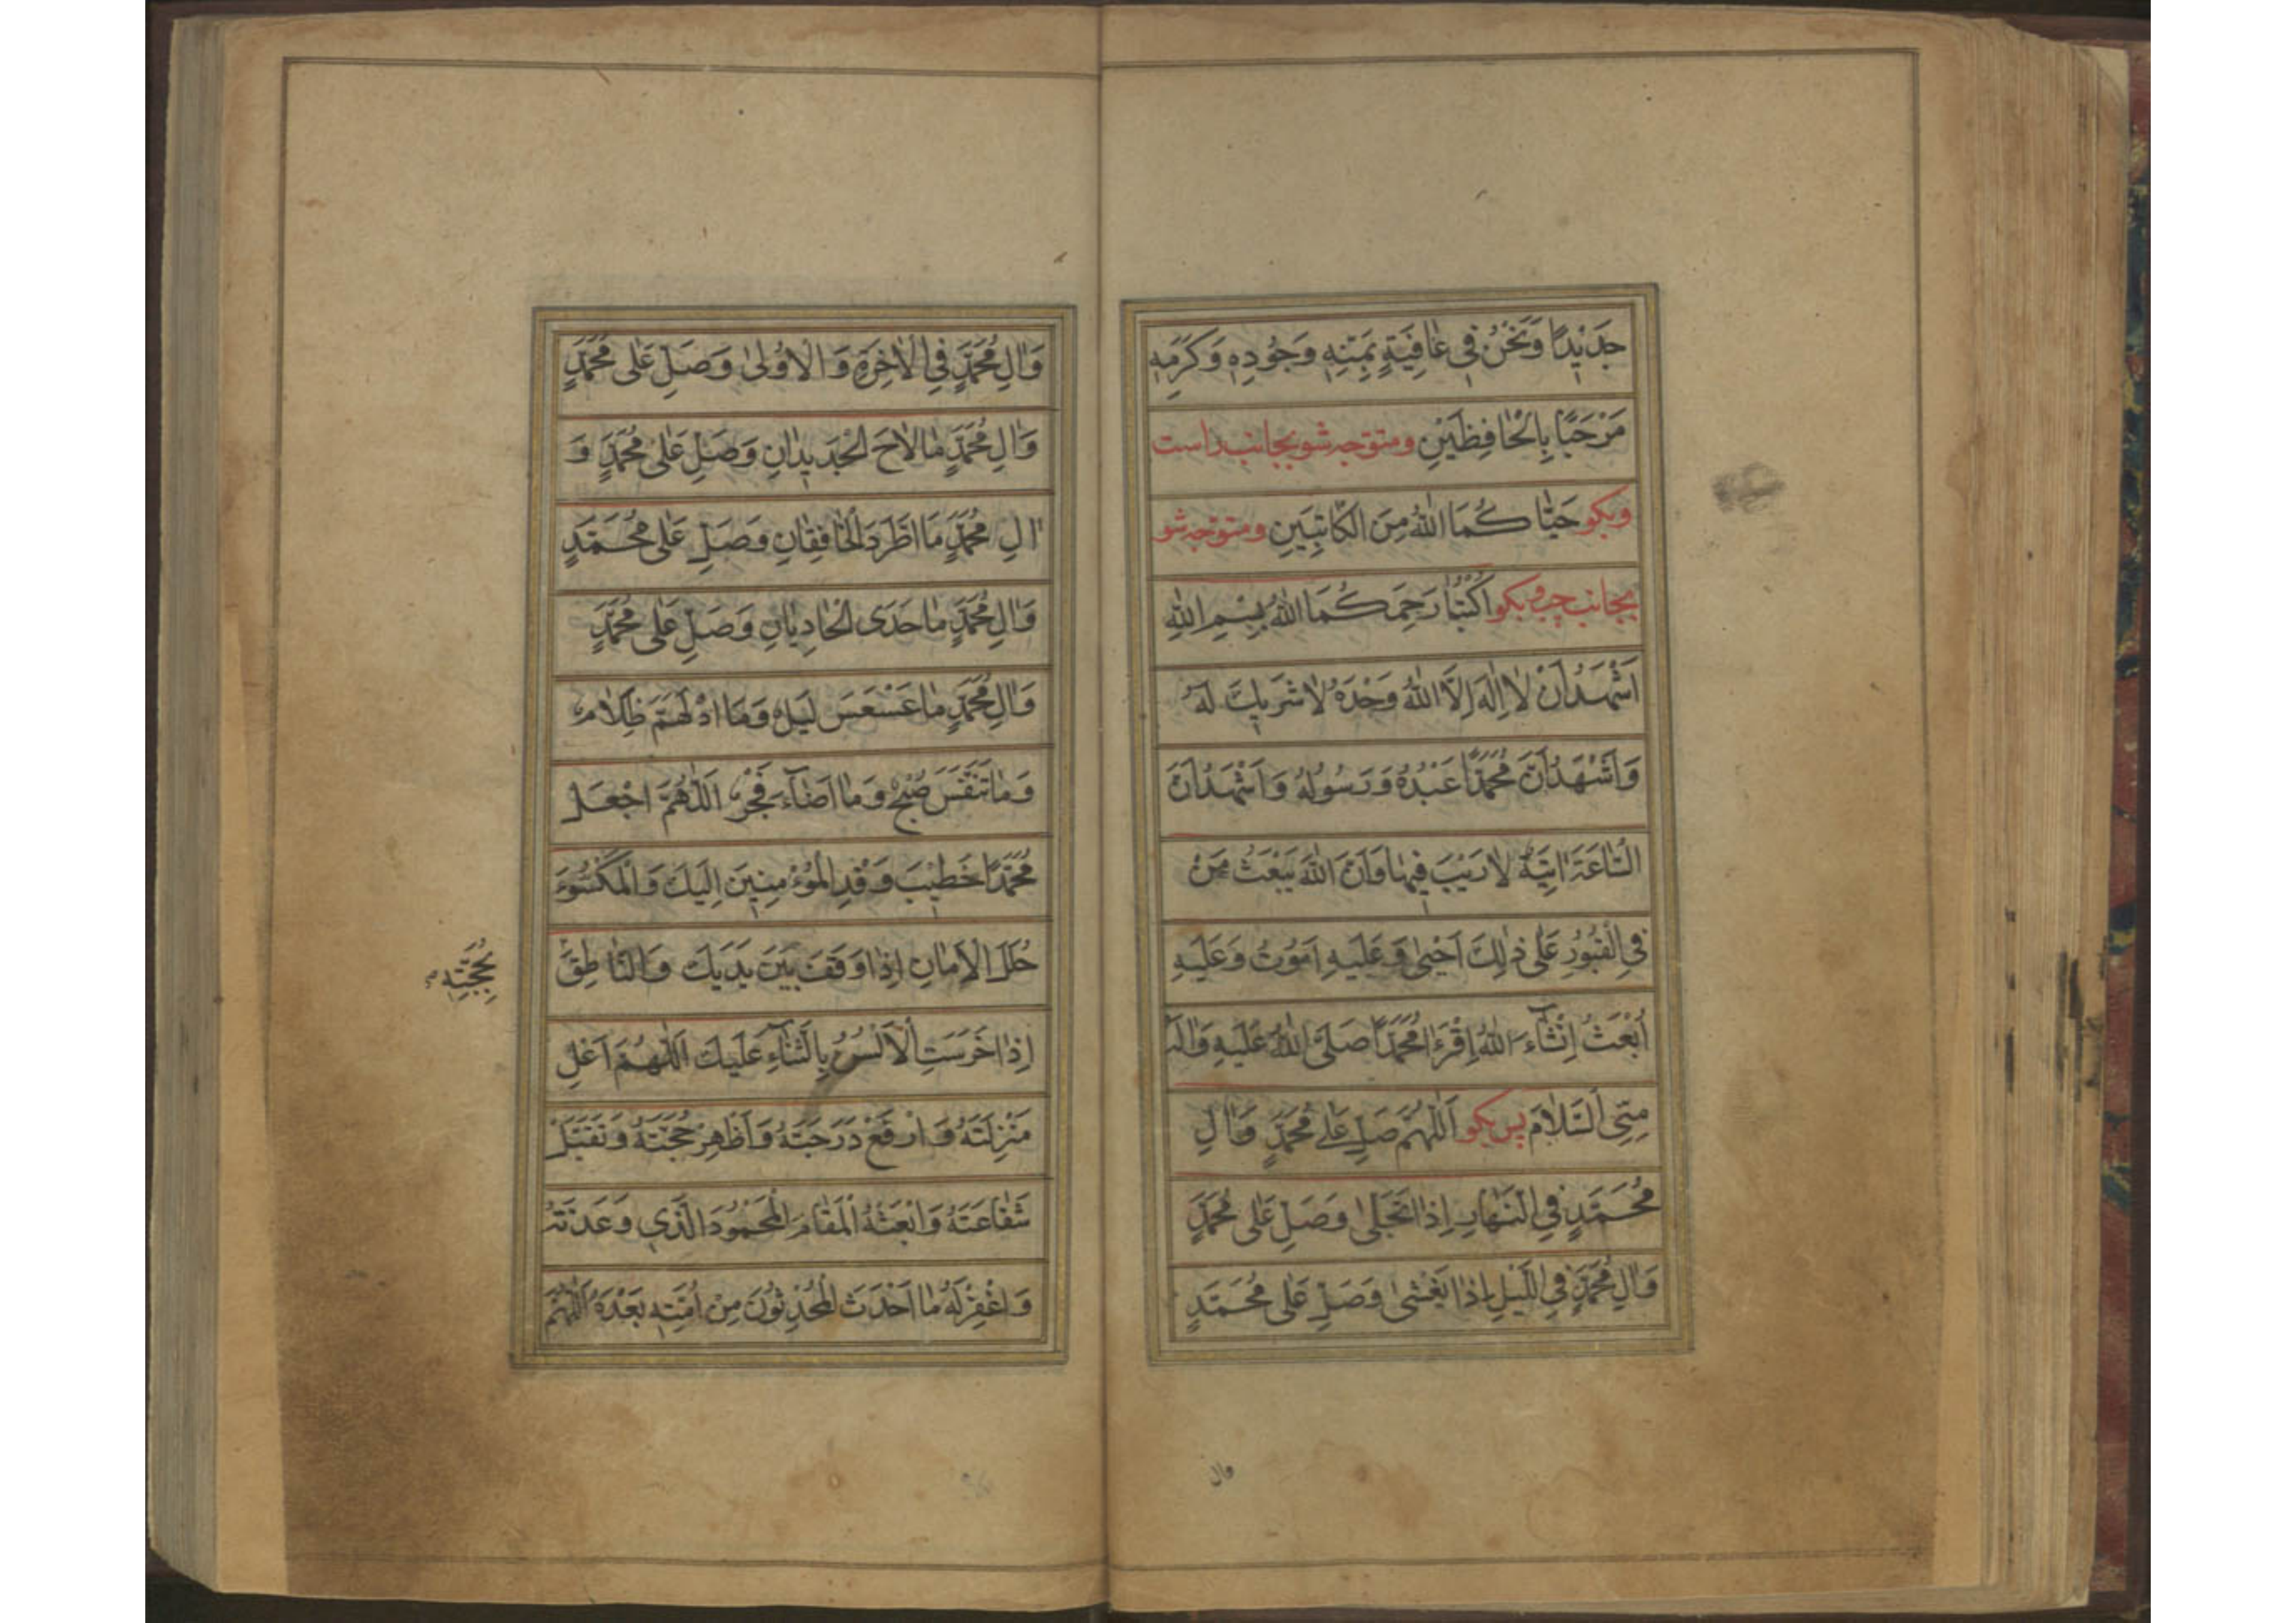 جَدِيْدًا وَنَحْنُ فِي عٰافِيَةٍ بِمَنِّهِ وَجُودِهِ وَكَرَمِهِ
مَرْحَبًا بِالْحٰافِظَيْنِ ومتوجه شو بجانب راست
وبكو حَيّٰا كُمَا اللهُ مِنَ الكَاتِبَيْنِ ومتوجه شو
بجانب چپ وبكو اكْتُبٰا رَحِمَكُمَا اللهُ بِسْمِ اللهِ
اَشْهَدُ اَنْ لاٰ اِلٰهَ اِلَّا اللهُ وَحْدَهُ لاٰ شَرِيكَ لَهُ
وَاَشْهَدُ اَنَّ مُحَمَّدًا عَبْدُهُ وَرَسُولُهُ وَاَشْهَدُ اَنَّ
السّٰاعَةَ اٰتِيَةٌ لاٰ رَيْبَ فِيهٰا وَاَنَّ اللهَ يَبْعَثُ مَنْ
فِي الْقُبُورِ عَلٰى ذٰلِكَ اَحْيٰى وَعَلَيْهِ اَمُوتُ وَعَلَيْهِ
اُبْعَثُ اِنْشٰاءَ اللهُ اِقْرَءْ مُحَمَّدًا صَلَّى اللهُ عَلَيْهِ وَاٰلِهِ
مِنِّى السَّلاٰمَ پس بكو اَللّٰهُمَّ صَلِّ عَلٰى مُحَمَّدٍ وَاٰلِ
مُحَمَّدٍ فِي النَّهٰارِ اِذٰا تَجَلّٰى وَصَلِّ عَلٰى مُحَمَّدٍ
وَاٰلِ مُحَمَّدٍ فِي اللَّيْلِ اِذٰا يَغْشٰى وَصَلِّ عَلٰى مُحَمَّدٍ
وال
وَاٰلِ مُحَمَّدٍ فِي الْاٰخِرَةِ وَالْاُولٰى وَصَلِّ عَلٰى مُحَمَّدٍ
وَاٰلِ مُحَمَّدٍ مٰا لاٰحَ الْجَدِيدٰانِ وَصَلِّ عَلٰى مُحَمَّدٍ وَ
اٰلِ مُحَمَّدٍ مَا اطَّرَدَ الْخٰافِقٰانِ وَصَلِّ عَلٰى مُحَمَّدٍ
وَاٰلِ مُحَمَّدٍ مٰا حَدَى الْحٰادِيٰانِ وَصَلِّ عَلٰى مُحَمَّدٍ
وَاٰلِ مُحَمَّدٍ مٰا عَسْعَسَ لَيْلٌ وَمَا ادْلَهَمَّ ظَلاٰمٌ
وَمٰا تَنَفَّسَ صُبْحٌ وَمٰا اَضٰاءَ فَجْرٌ اَللّٰهُمَّ اجْعَلْ
مُحَمَّدًا خَطِيْبَ وَفْدِ الْمُؤْمِنِينَ اِلَيْكَ وَالْمَكْسُوَّ
حُلَلَ الْاَمٰانِ اِذٰا وَقَفَ بَيْنَ يَدَيْكَ وَالنّٰاطِقَ
بِحُجَّتِهِ
اِذٰا خَرَسَتِ الْاَلْسُنُ بِالثَّنٰاءِ عَلَيْكَ اَللّٰهُمَّ اَعْلِ
مَنْزِلَتَهُ وَارْفَعْ دَرَجَتَهُ وَاَظْهِرْ حُجَّتَهُ وَتَقَبَّلْ
شَفٰاعَتَهُ وَابْعَثْهُ الْمَقٰامَ الْمَحْمُودَ الَّذِي وَعَدْتَهُ
وَاغْفِرْ لَهُ مٰا اَحْدَثَ الْمُحْدِثُونَ مِنْ اُمَّتِهِ بَعْدَهُ اَللّٰهُمَّ